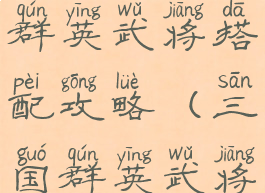 qún yīng wǔ jiāng dā
群英武将搭
pèi gōng lüè ( sān
配攻略（三
guó qún yīng wǔ jiāng
国群英武将